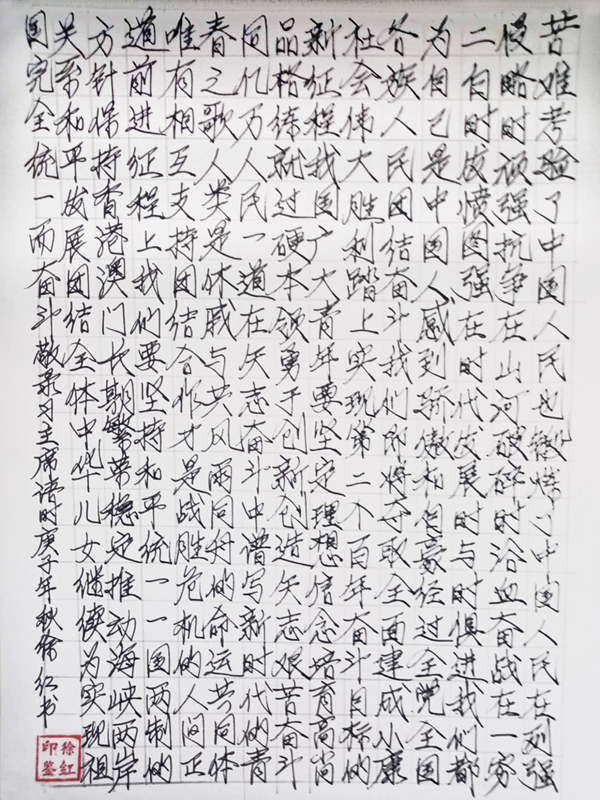 苦难考验了中国人民也锻炼了中国人民在列强
侵略时顽强抗争在山河破碎时浴血奋战在一穷
二白时发愤图强在时代发展时与时俱进我们都
为自己是中国人感到骄傲和自豪经过全党全国
各族人民团结奋斗我们即将夺取全面建成小康
社会伟大胜利踏上实现第二个百年奋斗目标的
新征程我国广大青年要坚定理想信念培育高尚
品格练就过硬本领勇于创新创造矢志艰苦奋斗
同亿万人民一道在矢志奋斗中谱写新时代的青
春之歌人类是休戚与共风雨同舟的命运共同体
唯有相互支持团结合作才是战胜危机的人间正
道前进征程上我们要坚持和平统一一国两制的
方针保持香港澳门长期繁荣稳定推动海峡两岸
关系和平发展团结全体中华儿女继续为实现祖
国完全统一而奋斗敬录习主席语时庚子年秋徐红书
徐红
印鉴